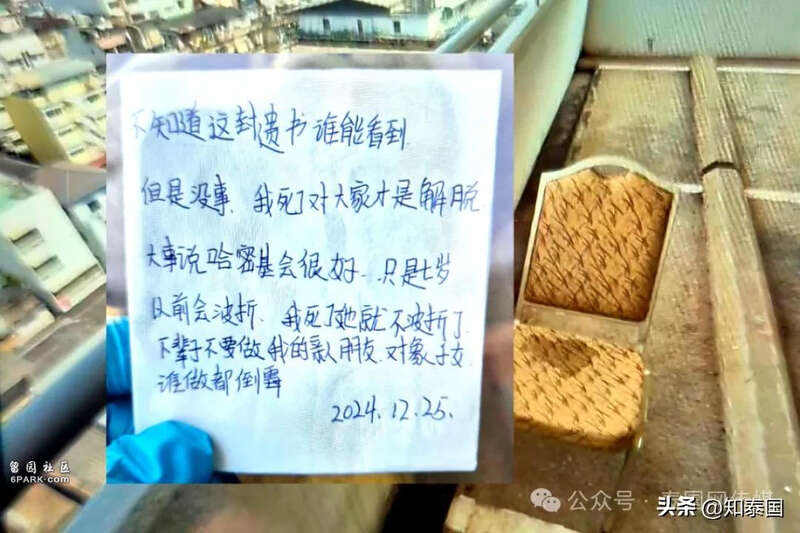 不知道这封遗书谁能看到
但是没事、我死了对大家才是解脱
大事说哈密基会很好、只是七岁
以前会波折、我死了她就不波折了
下辈子不要做我的亲人朋友、对象子女
谁做都倒霉
2024.12.25.
留园社区
6PARK.COM
公众号·
头条 @知泰国